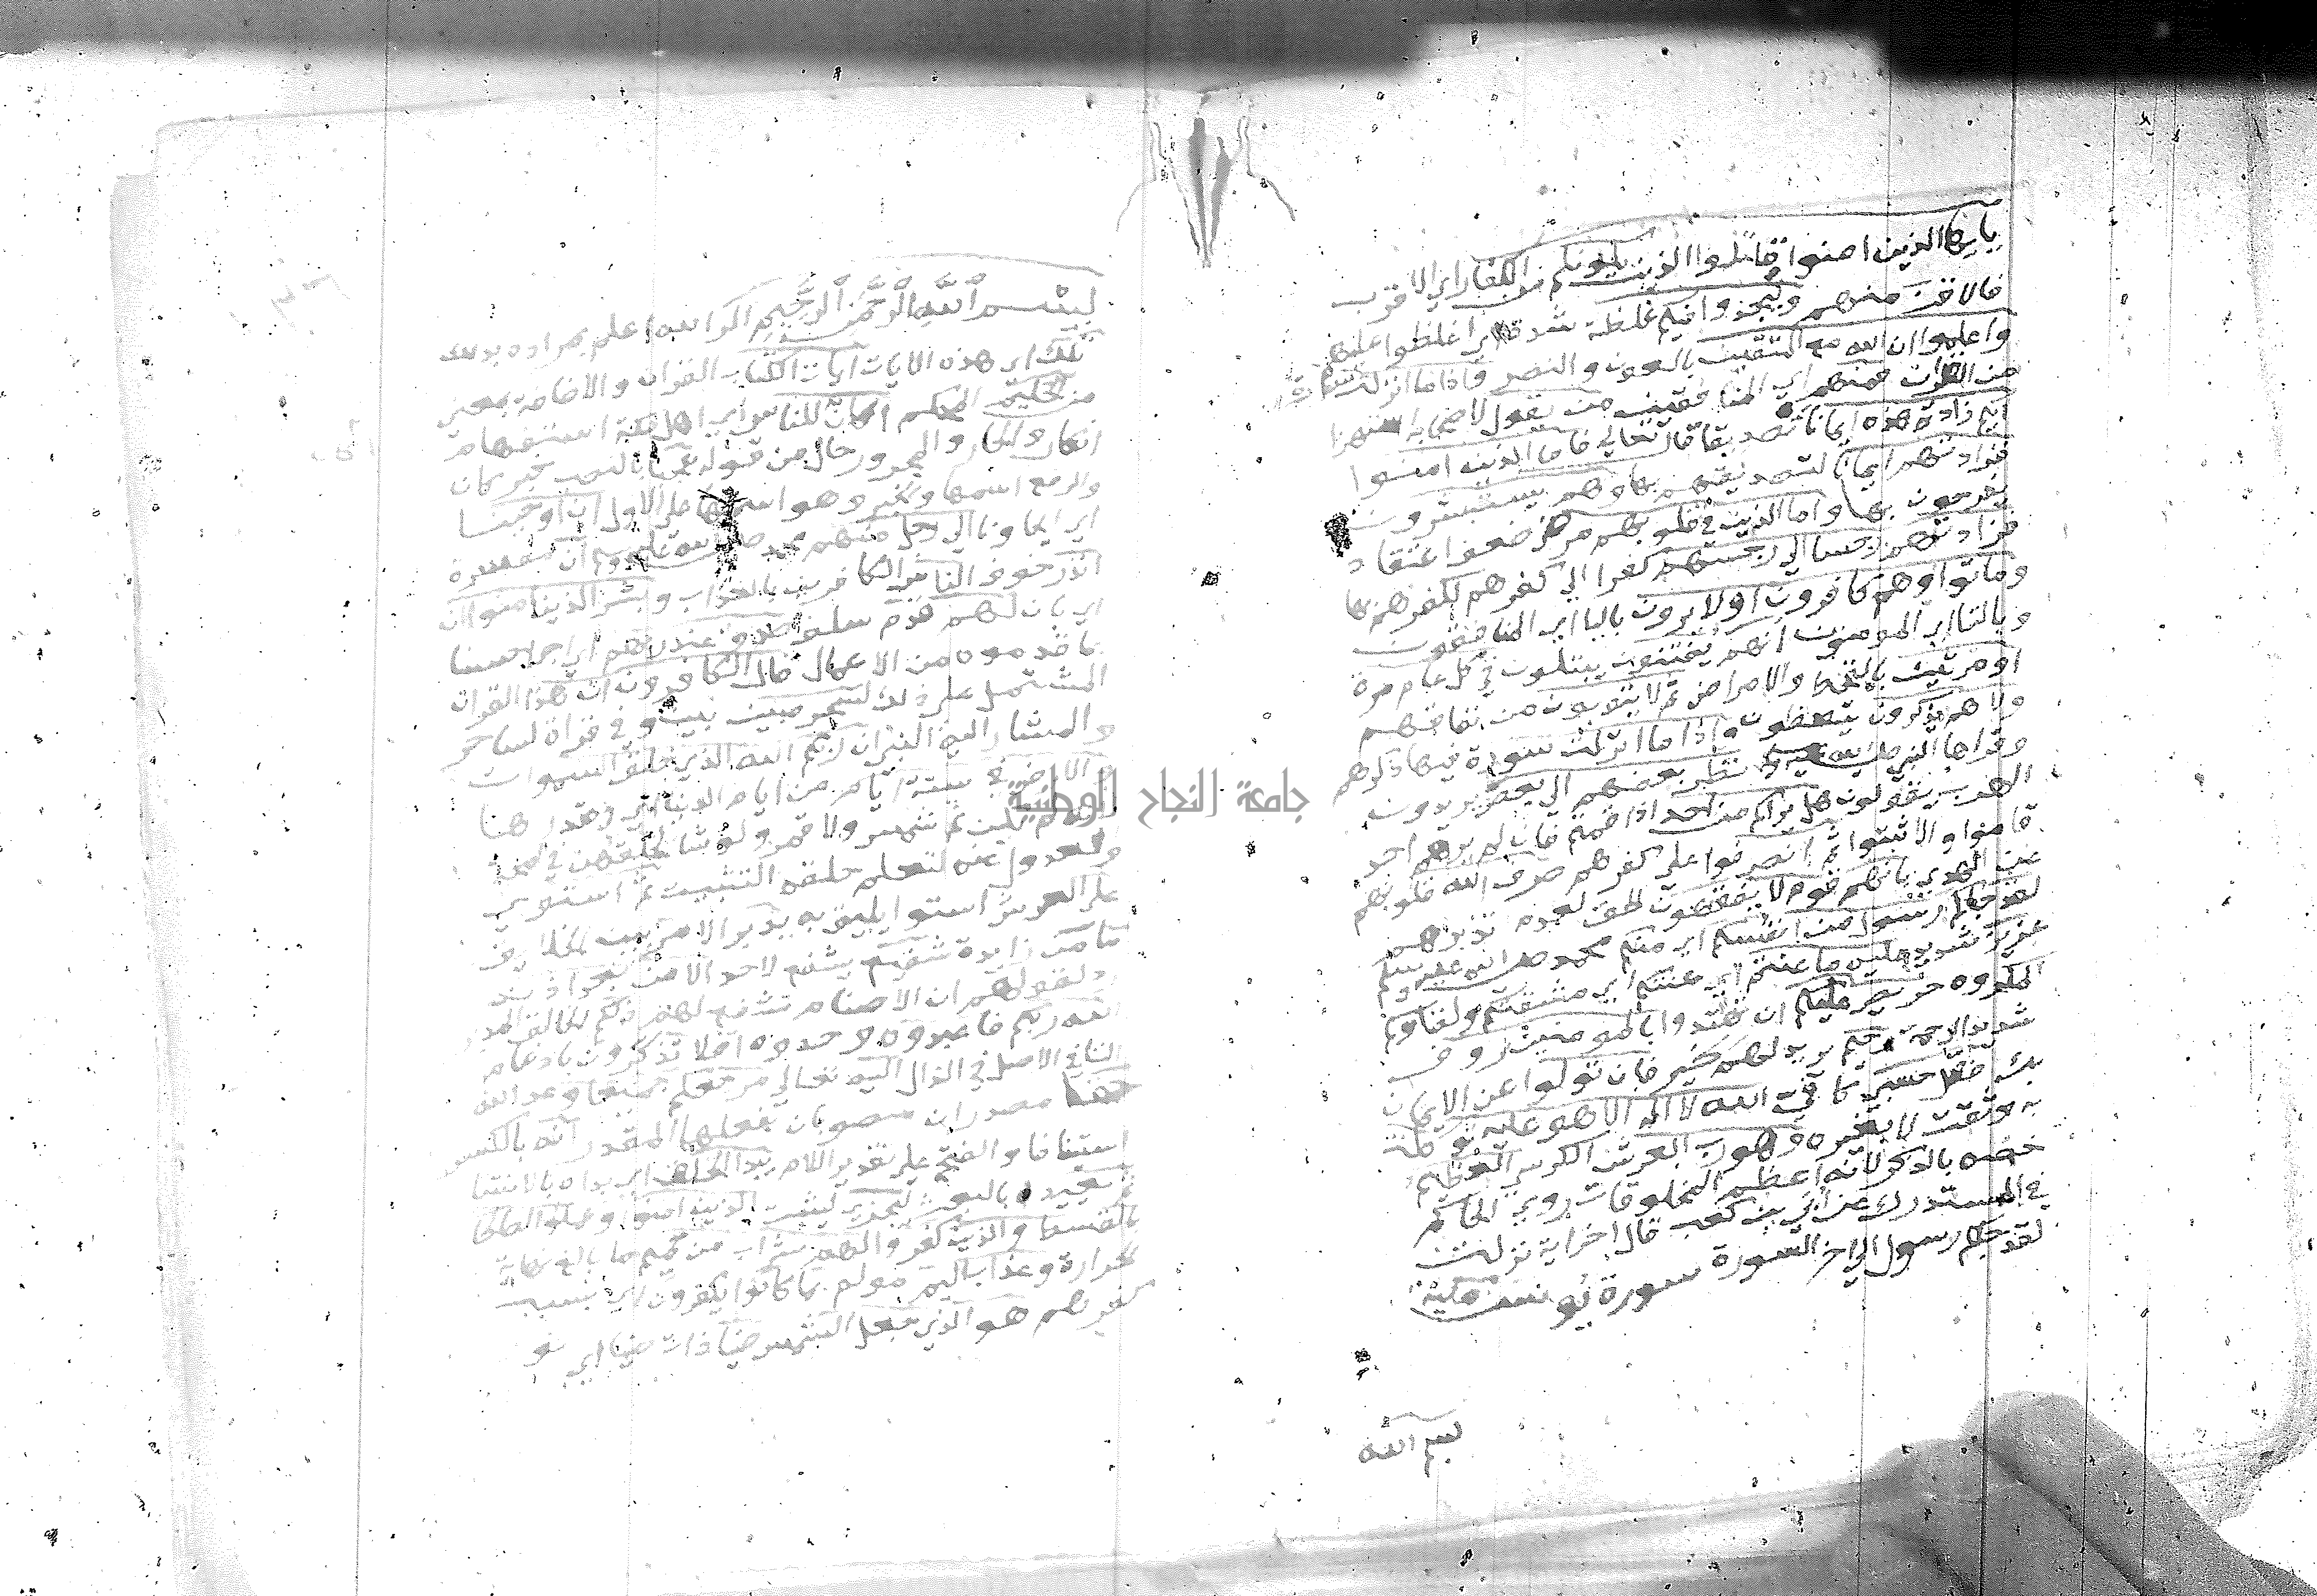 يايها الذين امنوا قاتلوا الذين يلونكم من الكفار اي الاقرب
فالاقرب منهم وليجدوا فيكم غلظة شدة اي اغلظوا عليهم
واعلموا ان الله مع المتقين بالعون والنصر واذا ما انزلت سورة
من القران فمنهم اي المنافقين من يقول لاصحابه استهزا
ايكم زادته هذه ايمانا تصديقا قال تعالى فاما الذين امنوا
فزادتهم ايمانا لتصديقهم بها وهم يستبشرون
يفرحون بها واما الذين في قلوبهم مرض ضعف اعتقاد
فزادتهم رجسا الى رجسهم كفرا الى كفرهم لكفرهم بها
وماتوا وهم كافرون اولا يرون باليا اي المنافقون
وبالتا اي المومنون انهم يفتنون يبتلون في كل عام مرة
او مرتين بالقحط والامراض ثم لا يتوبون من نفاقهم
ولا هم يذكرون يتعظون واذا ما انزلت سورة فيها ذكرهم
وقراها النبي صلى الله عليه وسلم نظر بعضهم الى بعض يريدون
الهرب يقولون هل يراكم من احد اذا قمتم فان لم يرهم احد
قاموا والا ثبتوا ثم انصرفوا على كفرهم صرف الله قلوبهم
عن الهدي بانهم قوم لا يفقهون الحق لعدم تدبرهم
لقد جاكم رسول من انفسكم اي منكم محمد صلى الله عليه وسلم
عزيز شديد عليه ما عنتم اي عنتكم اي مشقتكم ولقاوكم
المكروه حريص عليكم ان تهتدوا بالمومنين روف
شديد الرحمة رحيم يريد لهم الخير فان تولوا عن الايمان
بك فقل حسبي كافي الله لا اله الا هو عليه توكلت
به وثقت لا بغيره وهو رب العرش الكرسي العظيم
خصه بالذكر لانه اعظم المخلوقات روي الحاكم
في المستدرك عن ابي بن كعب قال اخر اية نزلت
لقد جاكم رسول الى اخر السورة سورة يونس مكية
بسم الله
بسم الله الرحمن الرحيم الر الله اعلم بمراده بذلك
تلك اي هذه الايات ايات الكتاب القران والاضافة بمعنى
من الحكيم المحكم اكان للناس اي اهل مكة استفهام
انكار والجار والمجرور حال من قوله عجبا بالنصب خبر كان
والرفع اسمها والخبر وهو اسمها على الاول ان اوحينا
اي ايحاونا الى رجل منهم محمد صلى الله عليه وسلم ان مفسرة
انذر خوف الناس الكافرين بالعذاب وبشر الذين امنوا ان
اي بان لهم قدم سلف صدق عند ربهم اي اجرا حسنا
بما قدموه من الاعمال قال الكافرون ان هذا القران
المشتمل على ذلك لسحر مبين بين وفي قراة لساحر
والمشار اليه النبي ان ربكم الله الذي خلق السموات
والارض في ستة ايام من ايام الدنيا اي وقدرها
لانه لم يكن ثم شمس ولا قمر ولو شا لخلقهن في لمحة
والعدول عنه لتعليم خلقه التثبت ثم استوى
على العرش استوا يليق به يدبر الامر بين الخلايق
ما من زايدة شفيع يشفع لاحد الا من بعد اذنه
رد لقولهم ان الاصنام تشفع لهم ذلكم الخالق المدبر
الله ربكم فاعبدوه وحدوه افلا تذكرون بادغام
التا في الاصل في الذال اليه تعالى مرجعكم جميعا وعد الله
حقا مصدران منصوبان بفعلهما المقدر انه بالكسر
استينافا والفتح على تقدير اللام يبدا الخلق اي بداه بالانشا
ثم يعيده بالبعث ليجزي ليثيب الذين امنوا وعملوا الصالحات
بالقسط والذين كفروا لهم شراب من حميم ما بالغ نهاية
الحرارة وعذاب اليم مولم بما كانوا يكفرون اي بسبب
كفرهم هو الذي جعل الشمس ضيا ذات ضيا اي نو
جامعة النجاح الوطنية